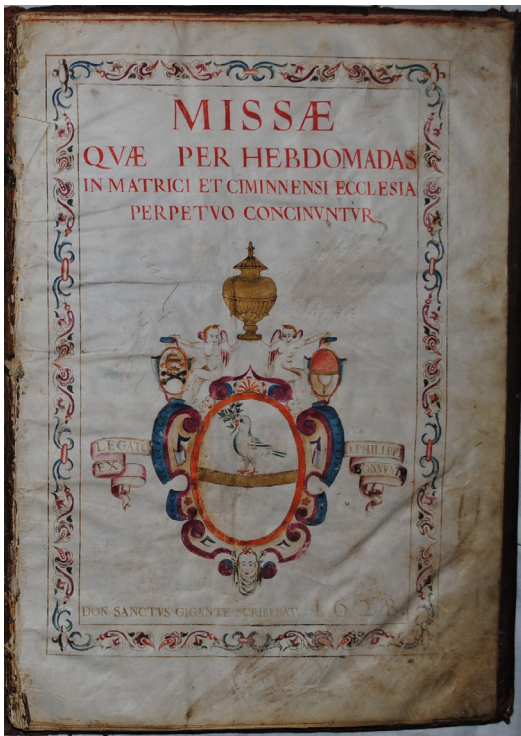 MISSÆ
QVÆ PER HEBDOMADAS
IN MATRICI ET CIMINNENSI ECCLESIA
PERPETVO CONCINVNTVR
LEGATO
EX
PHILIPPI
DON SANCTVS GIGANTE SCRIBEBAT. 1628